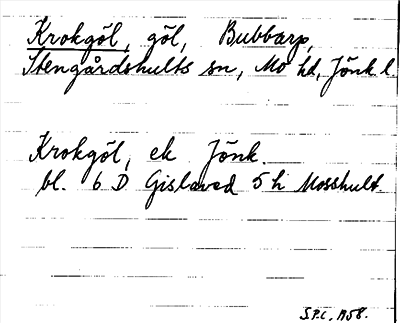 Krokgöl, göl, Bubbarp,
Stengårdshults sn, Mo hd, Jönk. l.
Krokgöl, ek Jönk.
bl. 6 D Gislaved 5 h Mosshult.
S.P.C. 1958.